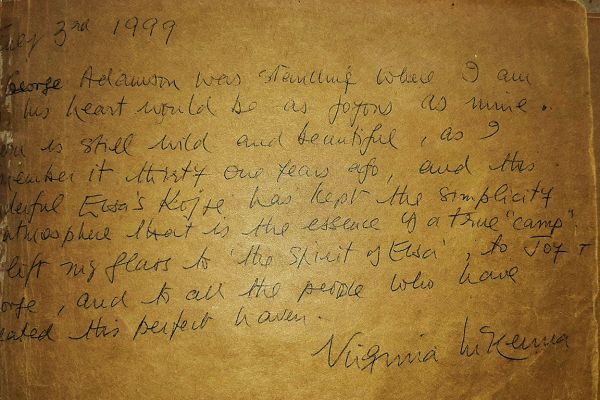 3rd 1999
George Adamson was standing where I am
his heart would be as joyous as mine.
is still wild and beautiful, as I
member it thirty one years ago, and this
derful Elsa's Kopje has kept the simplicity
atmosphere that is the essence of a true "camp".
lift my glass to 'the Spirit of Elsa', to Joy &
orge, and to all the people who have
eated this perfect haven.
Virginia McKenna